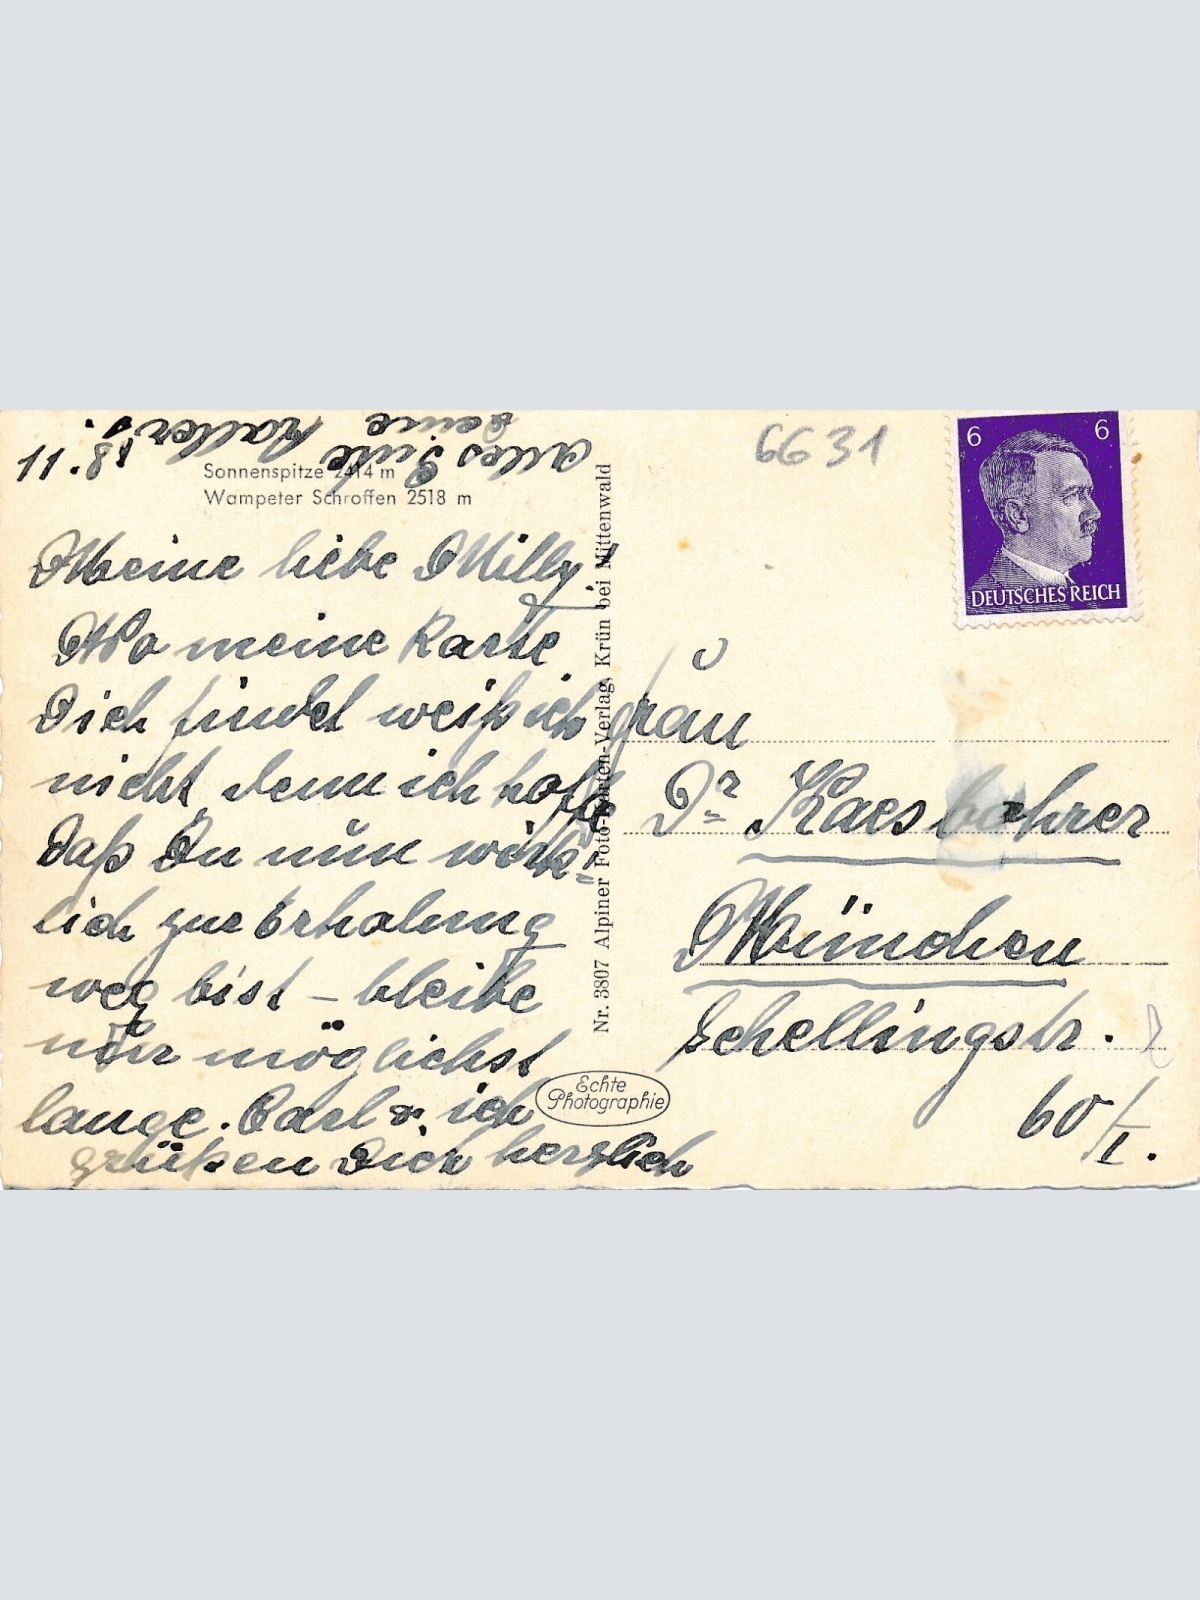 Sonnenspitze 2414 m
Wampeter Schroffen 2518 m
Meine liebe Milly.
Wo meine Karte
Dich findet weiß ich
nicht, denn ich hoffe
daß Du nun wirk=
lich zur Erholung
weg bist – bleibe
nur möglichst
lange. Carl & ich
grüßen Dich herzlich
Alles Gute
Deine
18. 11
Nr. 3807 Alpiner Foto-Karten-Verlag, Krün bei Mittenwald
Echte
Photographie
6631
6 6
DEUTSCHES REICH
Frau
Dr Kaesbohrer
München
Schellingstr.
60/I.